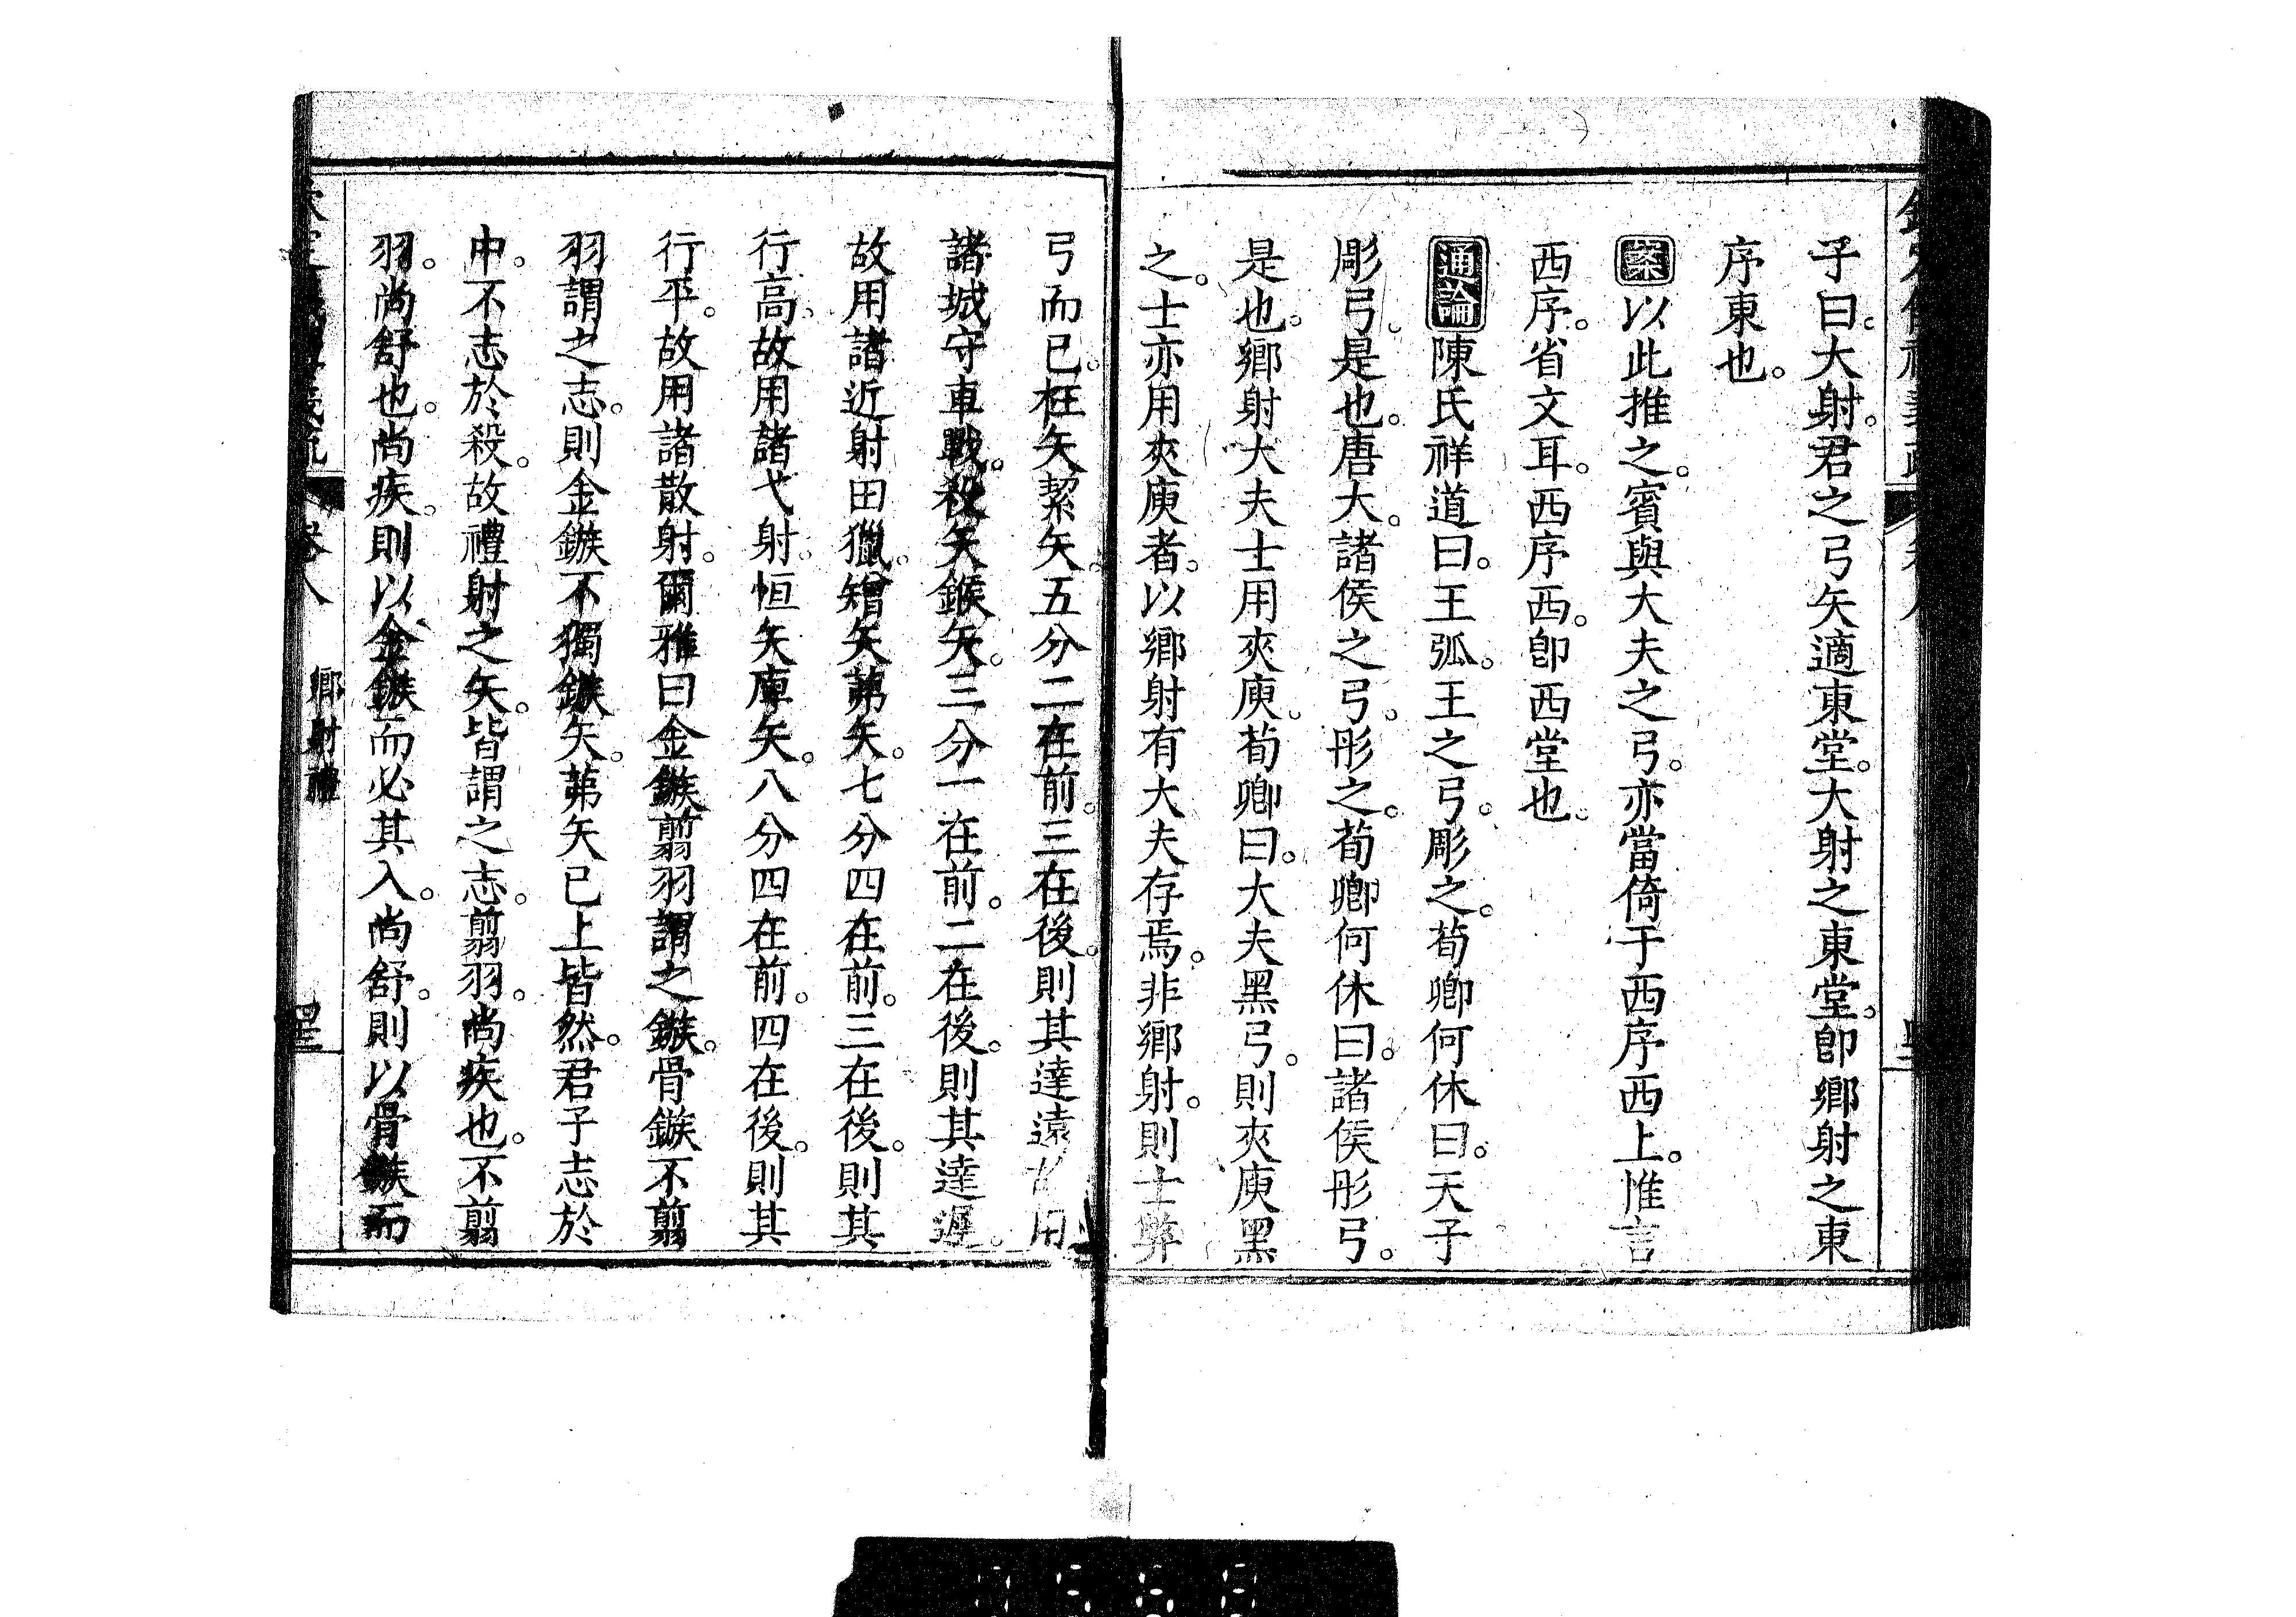 子曰。大射。君之弓矢適東堂。大射之東堂。卽鄉射之東
序東也。
案以此推之。賓與大夫之弓。亦當倚于西序西上。惟言
西序。省文耳。西序西。卽西堂也。
通論陳氏祥道曰。王弧。王之弓。彫之。荀卿何休曰。天子
彫弓。是也。唐大。諸侯之弓。彤之。荀卿何休曰。諸侯彤弓。
是也。鄉射大夫士用夾庾。荀卿曰。大夫黑弓。則夾庾黑
之。士亦用夾庾者。以鄉射有大夫存焉。非鄉射。則士弊
弓而已。枉矢絜矢。五分二在前。三在後。則其達遠 用
諸城守車戰。殺矢鍭矢。三分一在前。二在後。則其達遲。
故用諸近射田獵。矰矢茀矢。七分四在前。三在後。則其
行高。故用諸弋射。恒矢庳矢。八分四在前。四在後。則其
行平。故用諸散射。爾雅曰金鏃翦羽謂之鏃。骨鏃不翦
羽謂之志。則金鏃不獨鏃矢。茀矢已上皆然。君子志於
中。不志於殺。故禮射之矢。皆謂之志。翦羽。尚疾也。不翦
羽。尚舒也。尚疾。則以金鏃而必其入。尚舒。則以骨鏃而
卷八 鄉射禮